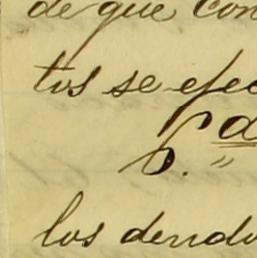 de que con
tos se efec
6.ª
los dendo